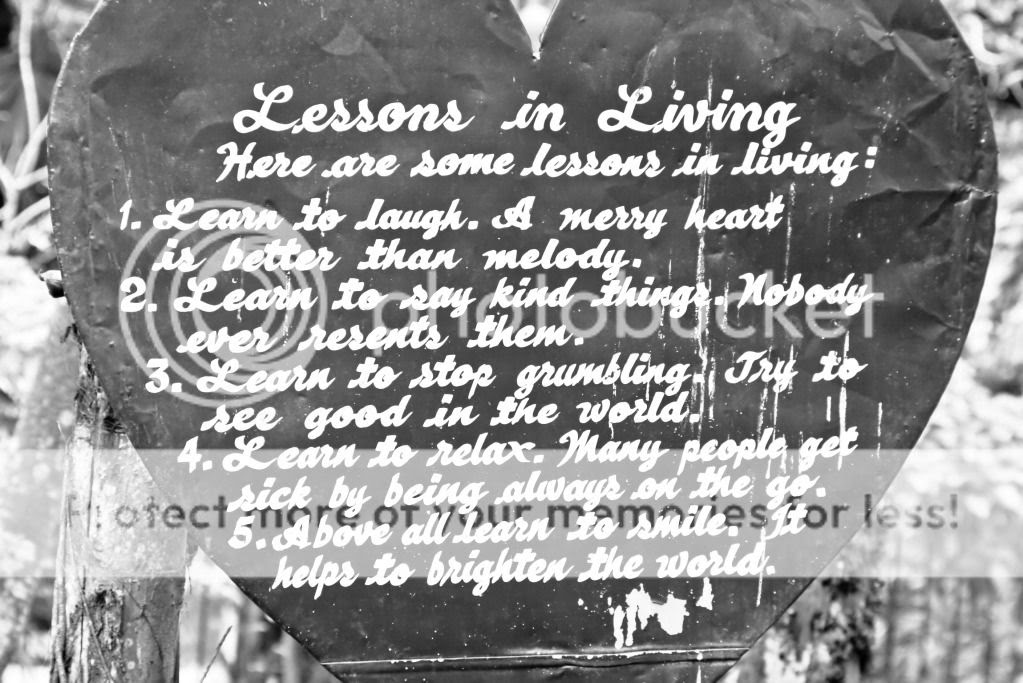 Lessons in Living
Here are some lessons in living:
1. Learn to laugh. A merry heart
is better than melody.
2. Learn to say kind things. Nobody
ever resents them.
3. Learn to stop grumbling. Try to
see good in the world.
4. Learn to relax. Many people get
sick by being always on the go.
5. Above all learn to smile. It
helps to brighten the world.
photobucket
Protect more of your memories for less!